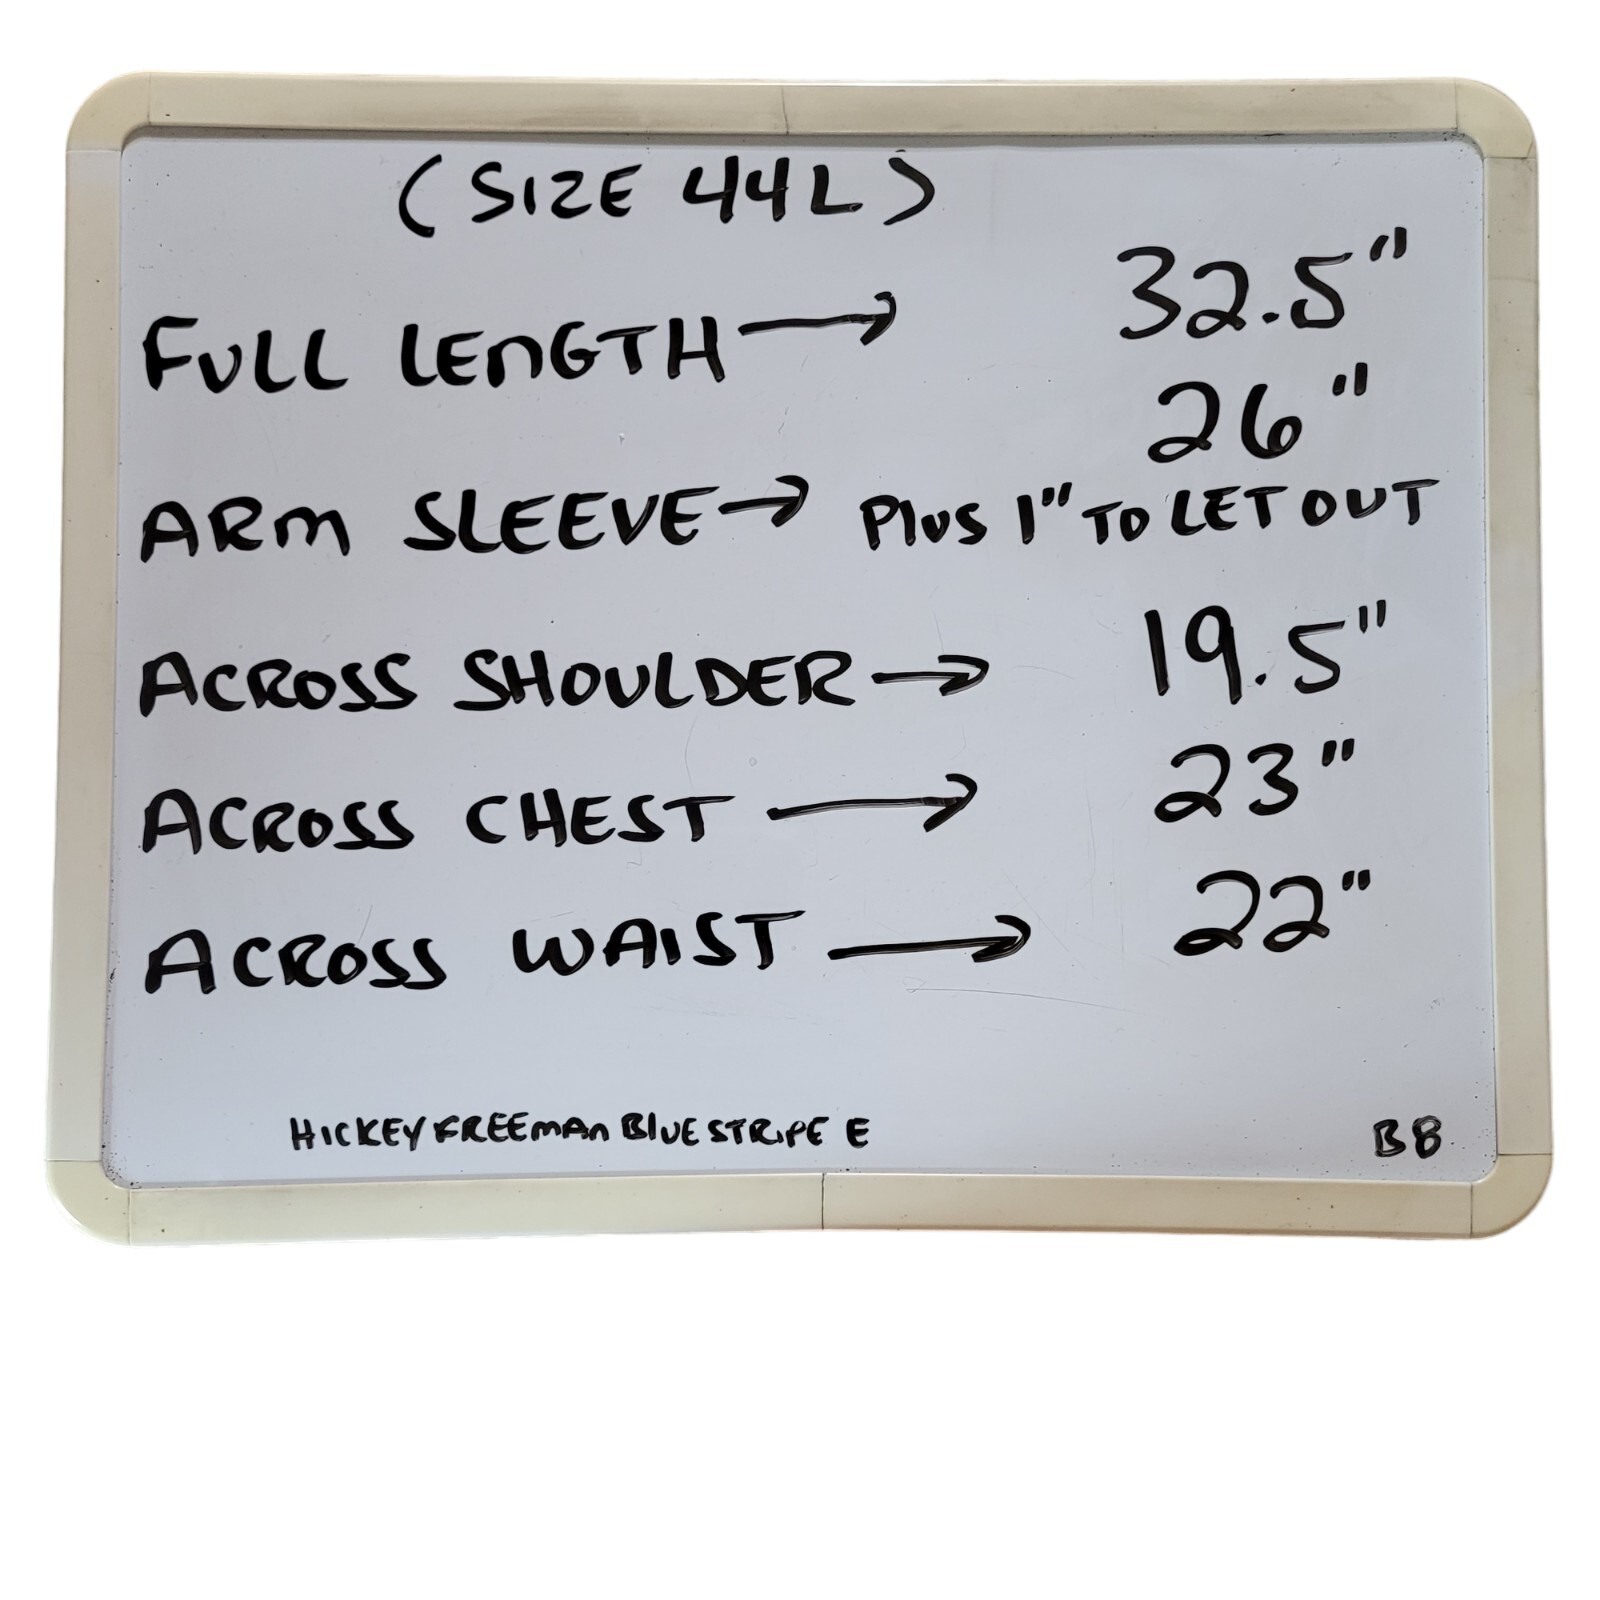 (SIZE 44L)
FULL LENGTH → 32.5"
26"
ARM SLEEVE → Plus 1" TO LET OUT
ACROSS SHOULDER → 19.5"
ACROSS CHEST → 23"
ACROSS WAIST → 22"
HICKEY FREEMAN BLUE STRIPE E BB